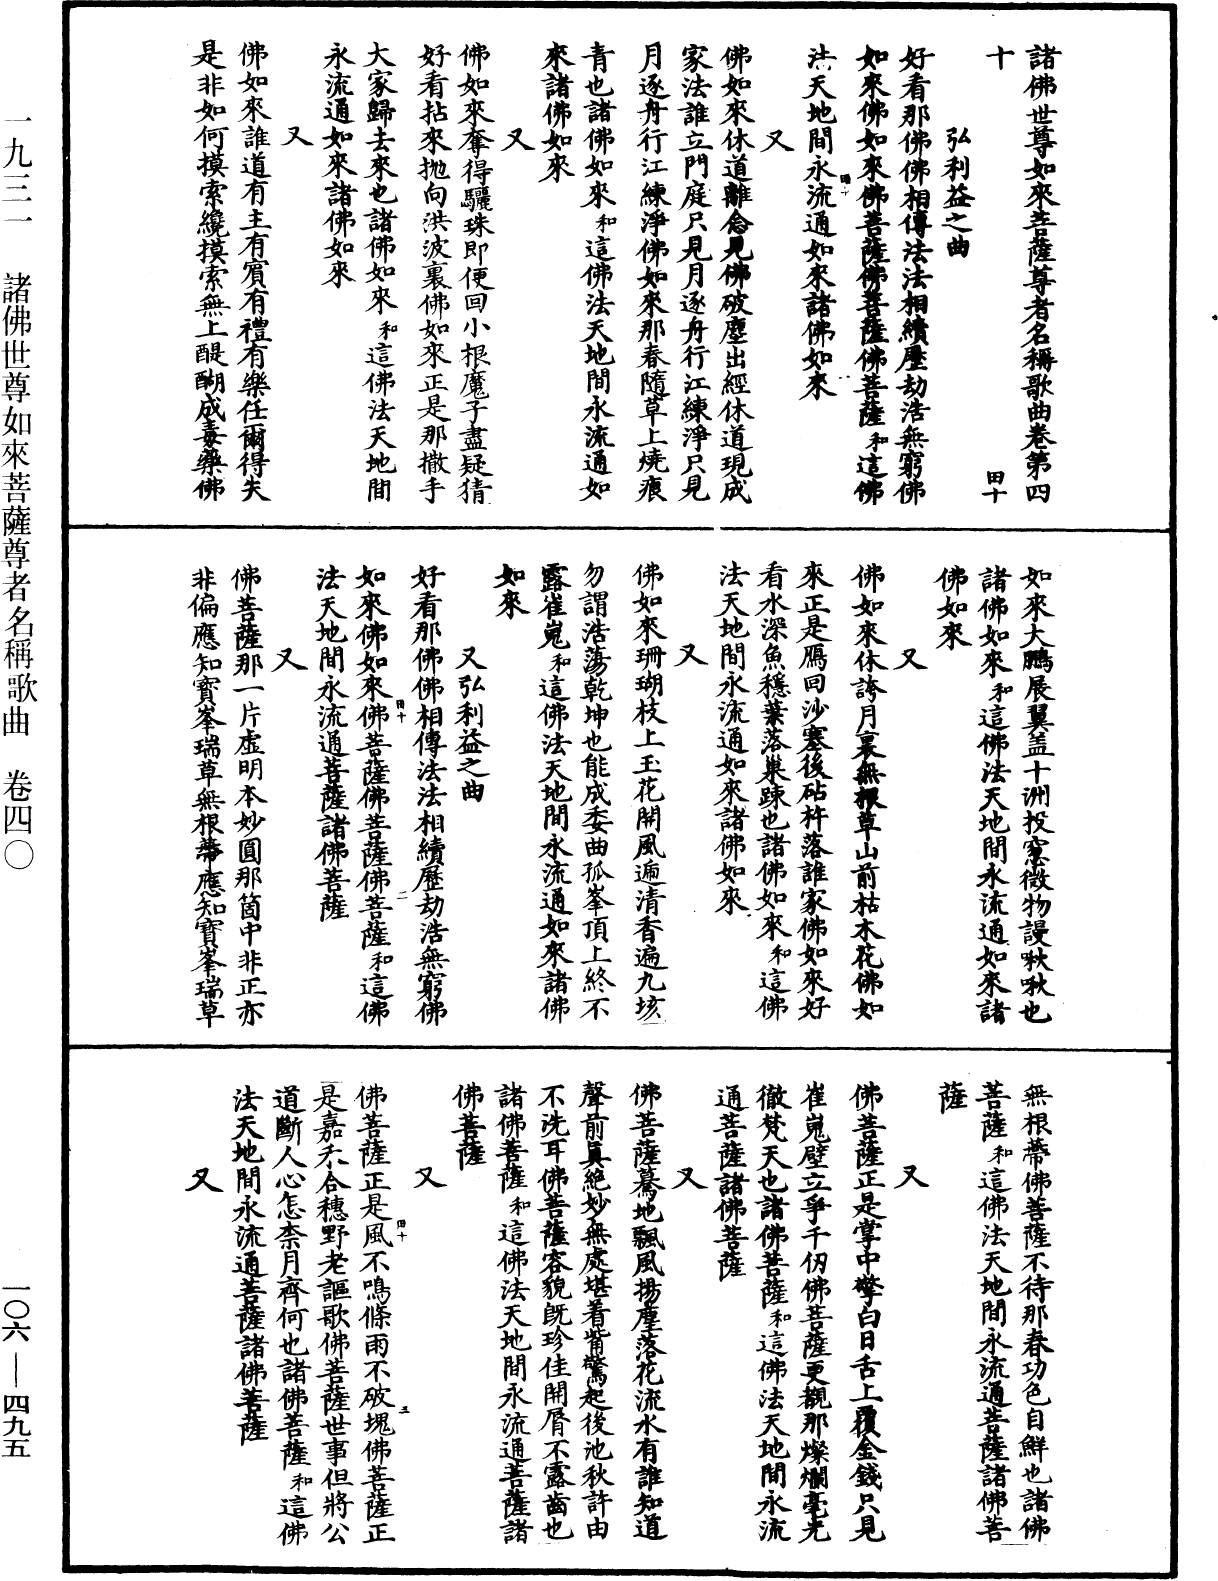 諸佛世尊如來菩薩尊者名稱歌曲卷第四
十　田十
弘利益之曲
好看那佛佛相傳法法相續歷劫浩無窮佛
如來佛如來佛菩薩佛菩薩佛菩薩和這佛
法天地間永流通如來諸佛如來
又
佛如來休道離念見佛破塵出經休道現成
家法誰立門庭只見月逐舟行江練淨只見
月逐舟行江練淨佛如來那春隨草上燒痕
青也諸佛如來和這佛法天地間永流通如
來諸佛如來
又
佛如來奪得驪珠即便回小根魔子盡疑猜
好看拈來拋向洪波裏佛如來正是那撒手
大家歸去來也諸佛如來和這佛法天地間
永流通如來諸佛如來
又
佛如來誰道有主有賓有禮有樂任爾得失
是非如何摸索纔摸索無上醍醐成毒藥佛
如來大鵬展翼盖十洲投窻微物謾啾啾也
諸佛如來和這佛法天地間永流通如來諸
佛如來
又
佛如來休誇月裏無根草山前枯木花佛如
來正是鴈回沙塞後砧杵落誰家佛如來好
看水深魚穩葉落巢踈也諸佛如來和這佛
法天地間永流通如來諸佛如來
又
佛如來珊瑚枝上玉花開風遞清香遍九垓
勿謂浩蕩乾坤也能成委曲孤峯頂上終不
露崔嵬和這佛法天地間永流通如來諸佛
如來
又弘利益之曲
好看那佛佛相傳法法相續歷劫浩無窮佛
如來佛如來佛菩薩佛菩薩佛菩薩和這佛
田十　二
法天地間永流通菩薩諸佛菩薩
又
佛菩薩那一片虛明本妙圓那箇中非正亦
非偏應知寶峯瑞草無根蔕應知寶峯瑞草
無根蔕佛菩薩不待那春功色自鮮也諸佛
菩薩和這佛法天地間永流通菩薩諸佛菩
薩
又
佛菩薩正是掌中擎白日舌上覆金錢只見
崔嵬壁立爭千仞佛菩薩更觀那燦爛毫光
徹梵天也諸佛菩薩和這佛法天地間永流
通菩薩諸佛菩薩
又
佛菩薩驀地飄風揚塵落花流水有誰知道
聲前眞絶妙無處堪着觜驚起後池秋許由
不洗耳佛菩薩容貌旣珍佳開脣不露齒也
諸佛菩薩和這佛法天地間永流通菩薩諸
佛菩薩
又
佛菩薩正是風不鳴條雨不破塊佛菩薩正
田十　三
是嘉禾合穗野老謳歌佛菩薩世事但將公
道斷人心怎柰月齊何也諸佛菩薩和這佛
法天地間永流通菩薩諸佛菩薩
又
一九三一　諸佛世尊如來菩薩尊者名稱歌曲　卷四〇
一〇六—四九五